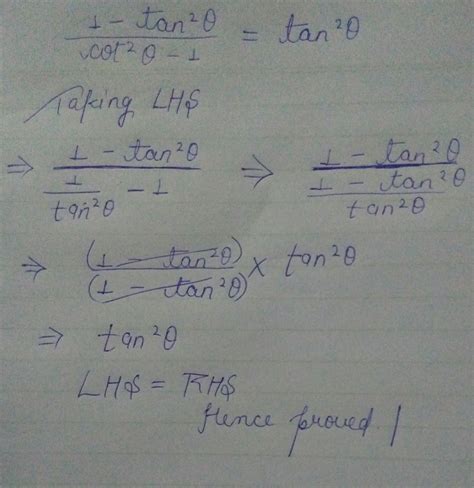 (1 - tan²θ)/(cot²θ - 1) = tan²θ
Taking LHS
⇒ (1 - tan²θ)/(1/tan²θ - 1) ⇒ (1 - tan²θ)/((1 - tan²θ)/tan²θ)
⇒ (1 - tan²θ)/(1 - tan²θ) × tan²θ
⇒ tan²θ
LHS = RHS
Hence proved /